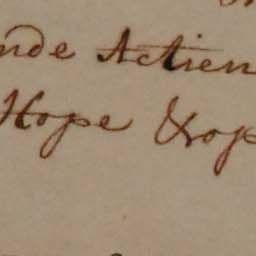 nde Actien
Hope &